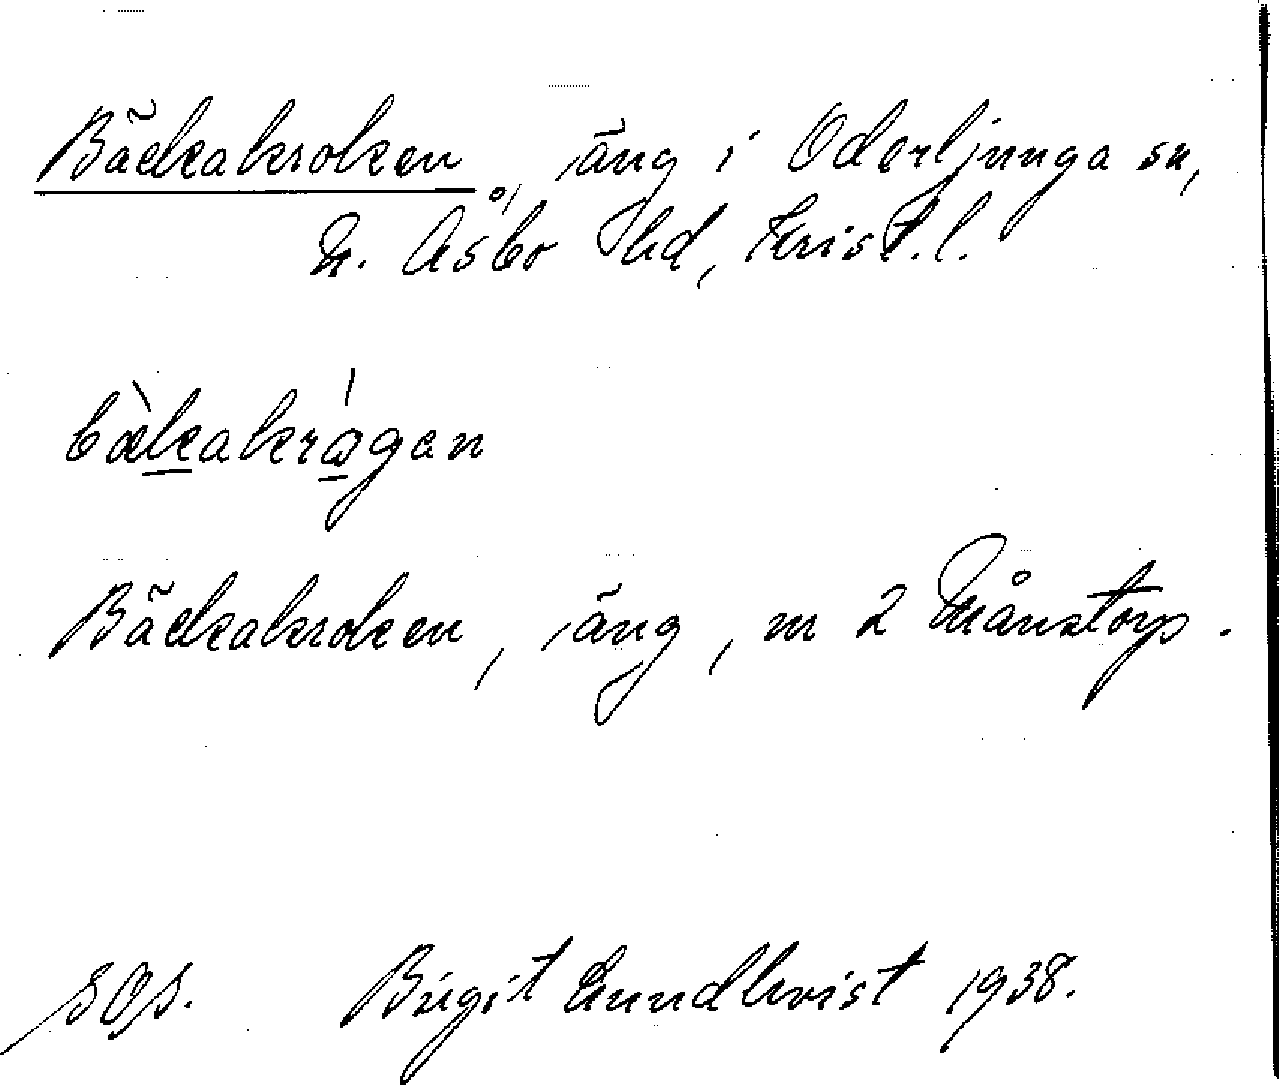 Bäckakroken, äng i Oderljunga sn,
N. Åsbo hd, Krist. l.
bæ̀kakrǻgen
Bäckakroken, äng, m 2 Månstorp.
SOS. Birgit Lundkvist 1938.